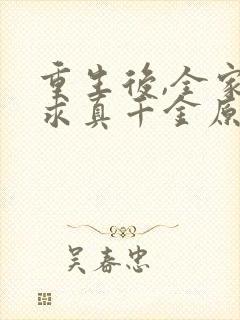 重生後,全家
求真千金原
吴春忠